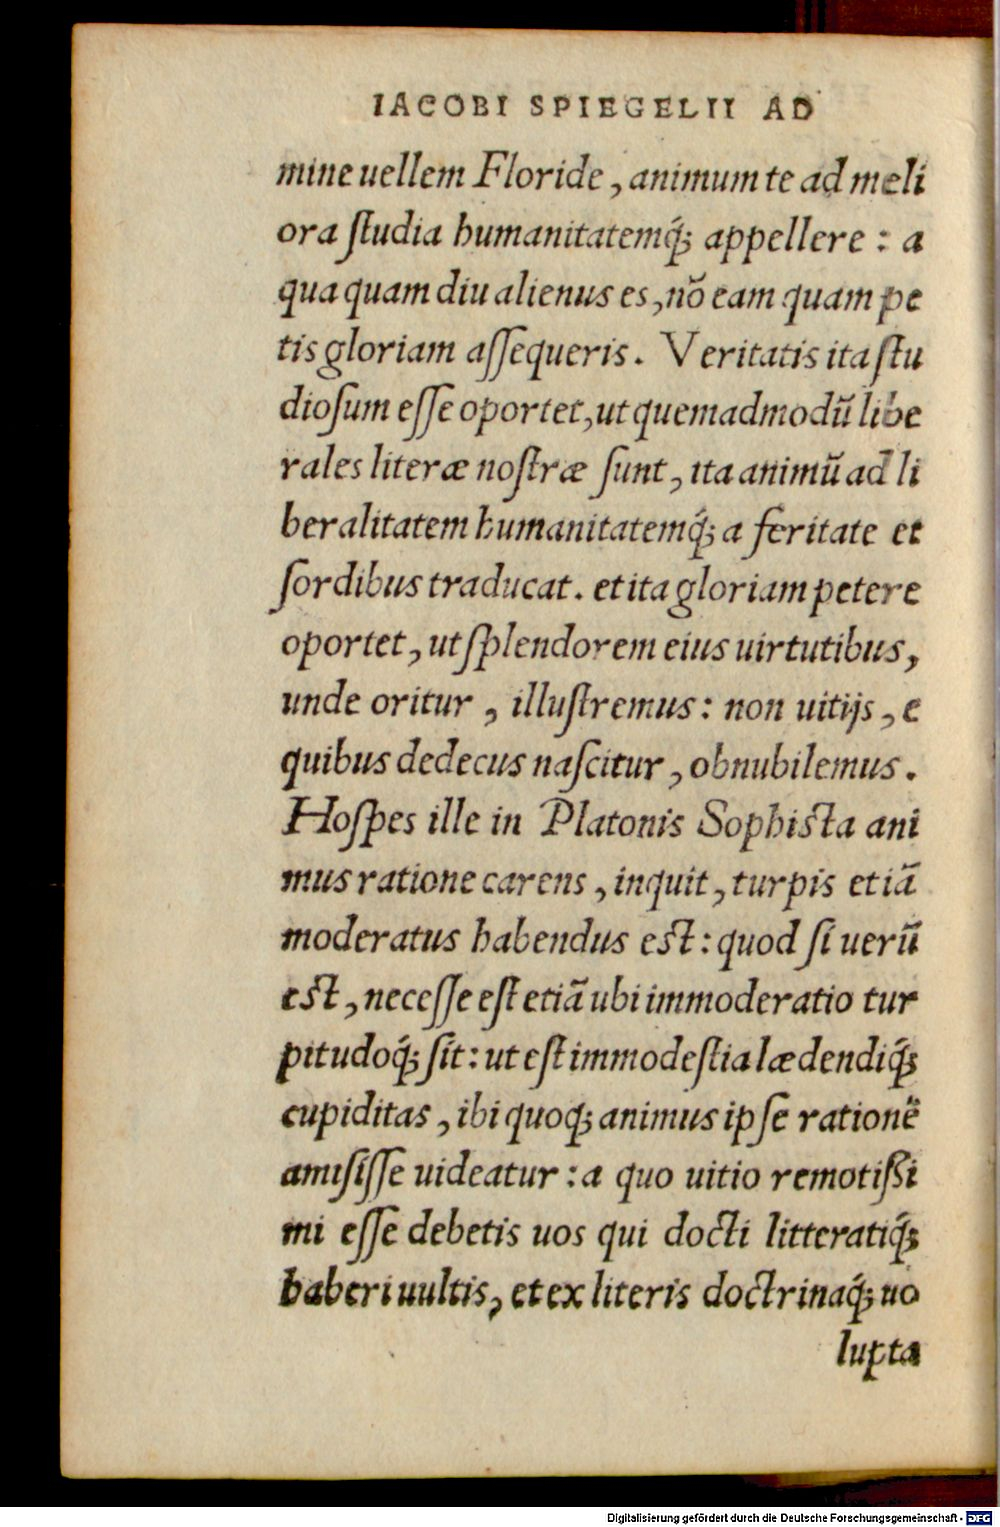 IACOBI SPIEGELII AD
mine uellem Floride, animum te ad meli
ora ſtudia humanitatemq́; appellere: a
qua quam diu alienus es, nõ eam quam pe
tis gloriam aſſequeris. Veritatis ita ſtu
dioſum eſſe oportet, ut quemadmodũ libe
rales literæ noſtræ ſunt, ita animũ ad li
beralitatem humanitatemq́; a feritate et
ſordibus traducat. et ita gloriam petere
oportet, ut ſplendorem eius uirtutibus,
unde oritur, illuſtremus: non uitijs, e
quibus dedecus naſcitur, obnubilemus.
Hoſpes ille in Platonis Sophista ani
mus ratione carens, inquit, turpis etiã
moderatus habendus est: quod ſi uerũ
est, neceſſe eſt etiã ubi immoderatio tur
pitudoq́; ſit: ut eſt immodeſtia lædendiq́;
cupiditas, ibi quoq; animus ipſe rationẽ
amiſiſſe uideatur: a quo uitio remotißi
mi eſſe debetis uos qui docti litteratiq́;
haberi uultis, et ex literis doctrinaq́; uo
lupta
Digitalisierung gefördert durch die Deutsche Forschungsgemeinschaft - DFG